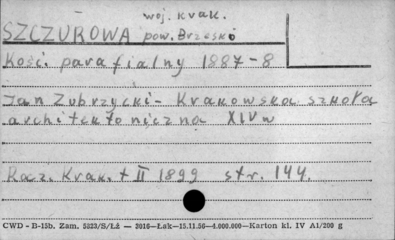 woj. krak.
SZCZUROWA pow. Brzesko
Kość. parafialny 1887-8
Jan Zubrzycki - Krakowska szkoła
architektoniczna XIV w
Rocz. Krak. t II 1899 str. 144.
CWD - B-15b. Zam. 5323/S/Łż — 2016—Łak—15.11.56—4.000.000—Karton kl. IV A1/200 g